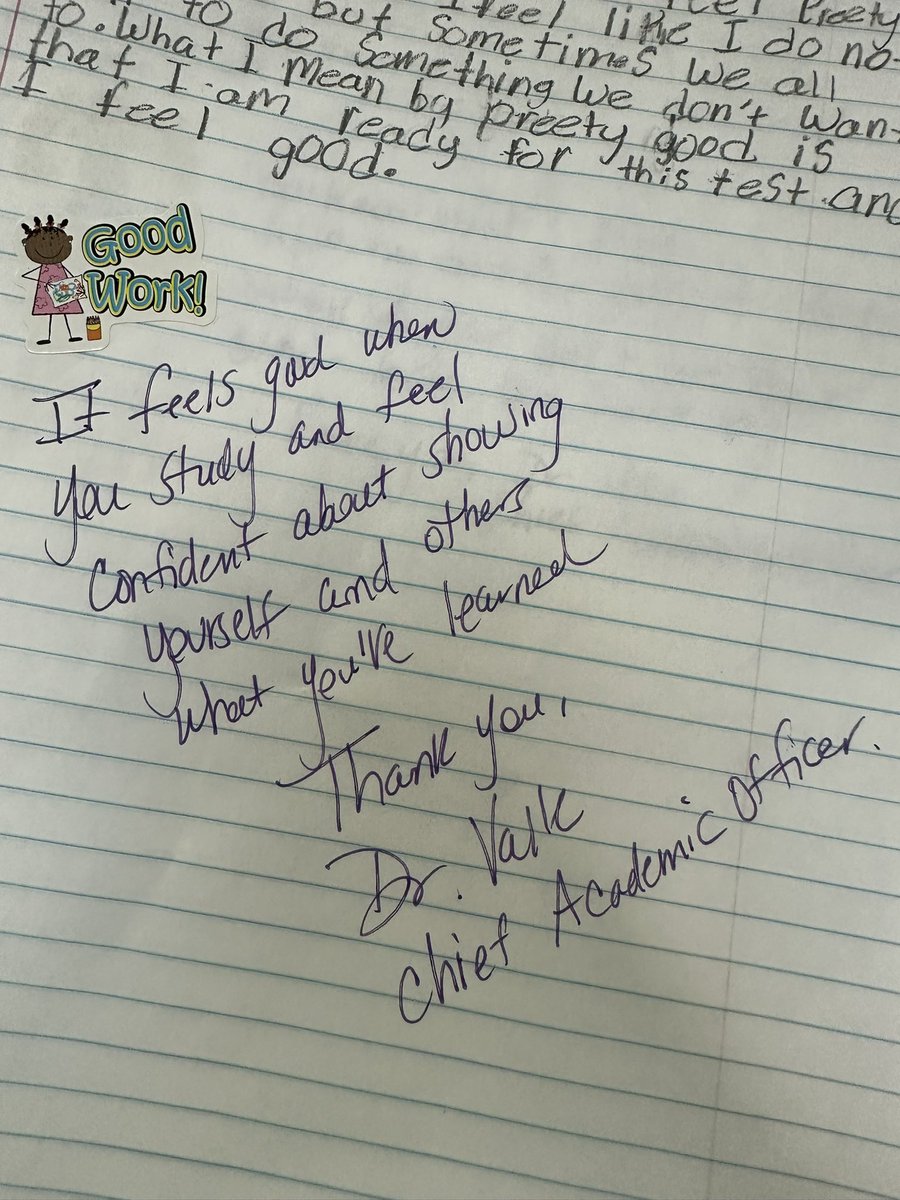 Preety
I feel like I do no
to but sometimes we all
to do something we don't wan
to.What I mean by preety good is
that I am ready for this test and
I feel good.
Good
Work!
It feels good when
you study and feel
confident about showing
yourself and others
what you've learned
Thank you,
Dr. Valk
Chief Academic Officer.